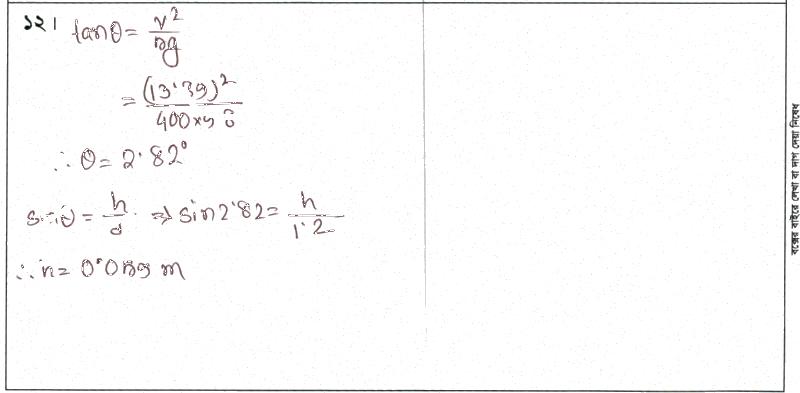 ১২। tanθ = v²/rg
= (13.39)²/400×9.8
∴ θ = 2.82°
sinθ = h/d ⇒ sin2.82 = h/1.2
∴ h = 0.059 m
বক্সের বাইরে লেখা বা দাগ দেয়া নিষেধ